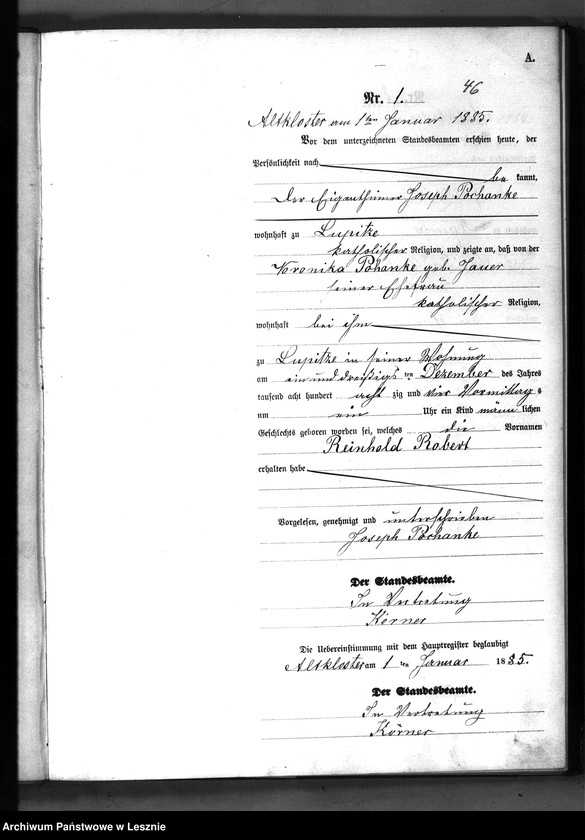 A.
46
Nr. 1.
Altkloster am 1ten Januar 1885.
Vor dem unterzeichneten Standesbeamten erschien heute, der
Persönlichkeit nach
be kannt,
der Eigenthümer Joseph Pochanke
wohnhaft zu Lupitze
katholischer Religion, und zeigte an, daß von der
Veronika Pohanke geb. Jauer
seiner Ehefrau
katholischer Religion,
wohnhaft bei ihm
zu Lupitze in seiner Wohnung
am ein und dreißigs ten Dezember des Jahres
tausend acht hundert acht zig und vier Vormittag s
um ein Uhr ein Kind männ lichen
Geschlechts geboren worden sei, welches die Vornamen
Reinhold Robert
erhalten habe
Vorgelesen, genehmigt und unterschrieben
Joseph Pochanke
Der Standesbeamte.
In Vertretung
Körner
Die Uebereinstimmung mit dem Hauptregister beglaubigt
Altkloster am 1 ten Januar 1885.
Der Standesbeamte.
In Vertretung
Körner
Archiwum Państwowe w Lesznie